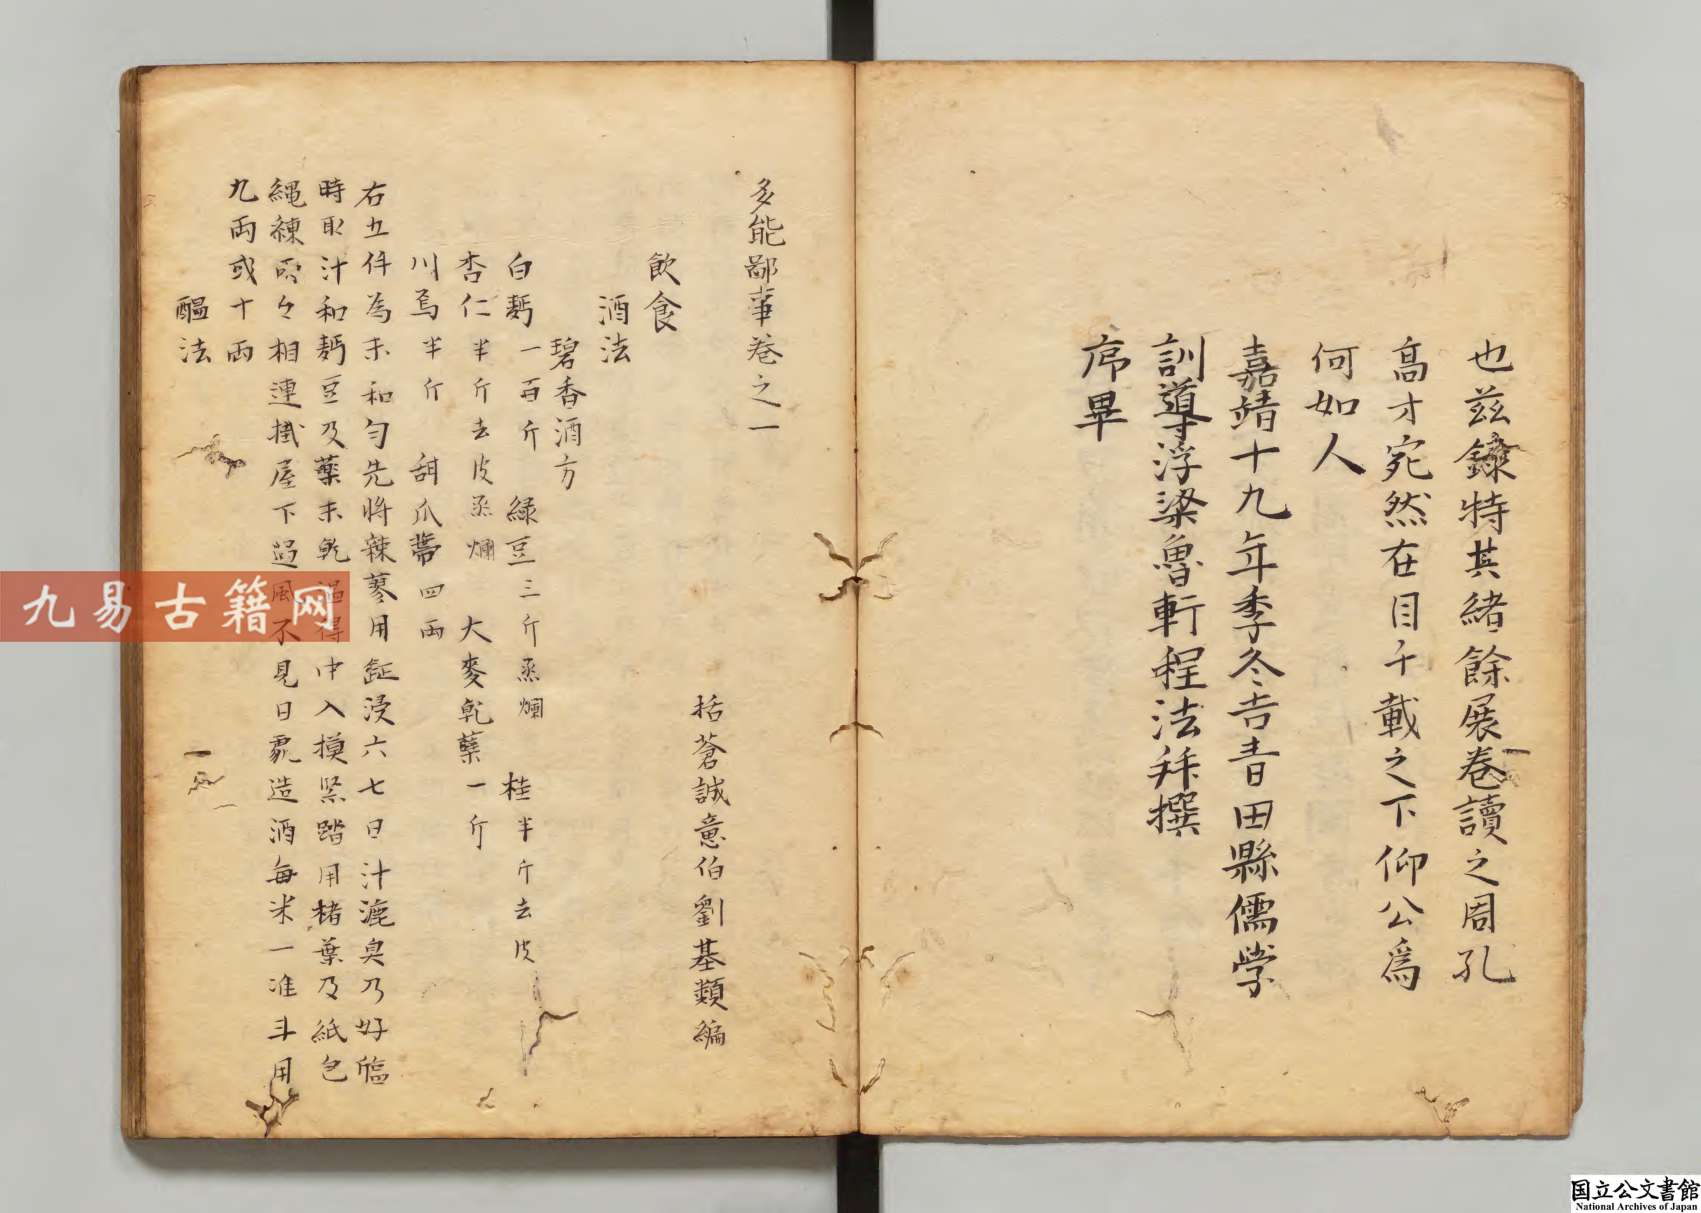 也茲錄特其緒餘展卷讀之周孔
高才宛然在目千載之下仰公爲
何如人
嘉靖十九年季冬吉青田縣儒学
訓導浮梁魯軒程法拜撰
序畢
多能鄙事卷之一
括蒼誠意伯劉基類編
飲食
酒法
碧香酒方
白麪一百斤 綠豆三斤蒸爛 桂半斤去皮
杏仁半斤去皮蒸爛 大麥乾蘖一斤
川烏半斤 甜瓜蔕四两
右五件為末和勻先將辣蓼用 浸六七日汁漉臭乃好臨
時取汁和麪豆及藥末乾湿得中入模緊踏用楮葉及紙包
繩 々相連掛屋下迊風不見日 造酒每米一准斗用
九两或十两
醞法
九易古籍网
国立公文書館
National Archives of Japan